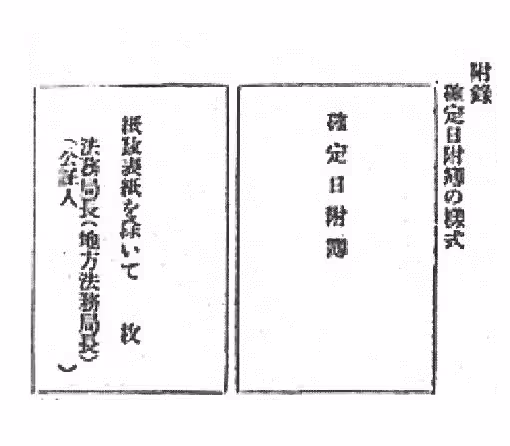 附録
確定日附簿の様式
確定日附簿
紙数表紙を除いて　枚
法務局長(地方法務局長)
(公証人　)